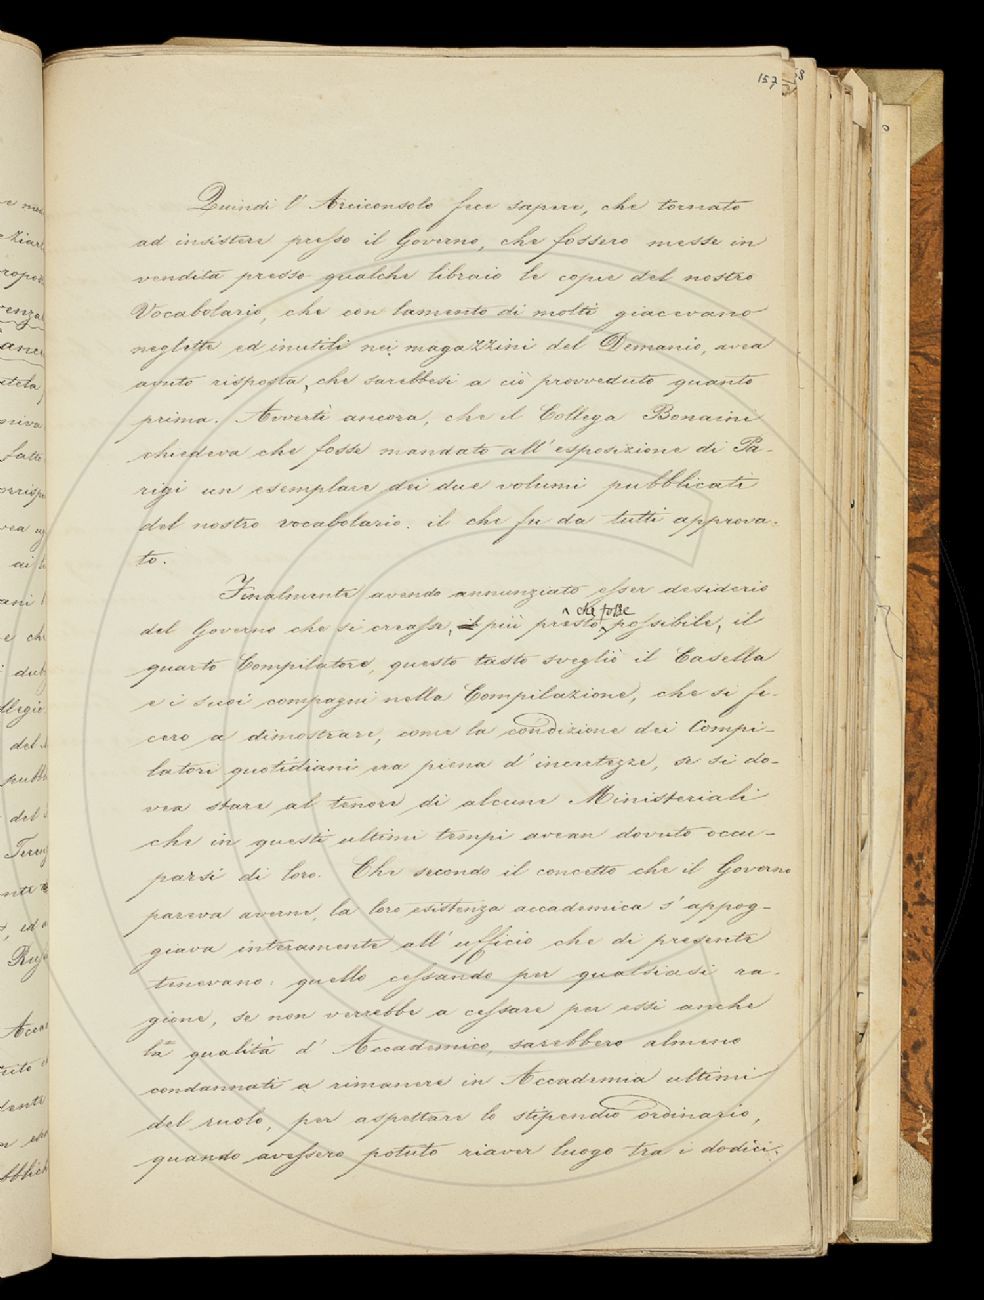 157
Quindi l'Arciconsolo fece sapere, che tornato
ad insistere presso il Governo, che fossero messe in
vendita presso qualche libraio le copie del nostro
Vocabolario, che con lamento di molti giacevano
neglette ed inutili nei magazzini del Demanio, avea
avuto risposta, che sarebbesi a ciò provveduto quanto
prima. Avvertì ancora, che il Collega Bonaini
chiedeva che fosse mandato all'esposizione di Pa-
rigi un esemplare dei due volumi pubblicati
del nostro vocabolario: il che fu da tutti approva-
to.
Finalmente avendo annunziato esser desiderio
che fosse
del Governo che si creasse, il più presto possibile, il
quarto Compilatore, questo tasto svegliò il Casella
e i suoi compagni nella Compilazione, che si fe-
cero a dimostrare, come la condizione dei Compi-
latori quotidiani era piena d'incertezze, se si do-
vea stare al tenore di alcune Ministeriali
che in questi ultimi tempi avean dovuto occu-
parsi di loro. Che secondo il concetto che il Governo
pareva averne, la loro esistenza accademica s'appog-
giava interamente all'ufficio che di presente
tenevano: quello cessando per qualsiasi ra-
gione, se non verrebbe a cessare per essi anche
la qualità d'Accademico, sarebbero almeno
condannati a rimanere in Accademia ultimi
del ruolo, per aspettare lo stipendio ordinario,
quando avessero potuto riaver luogo tra i dodici.